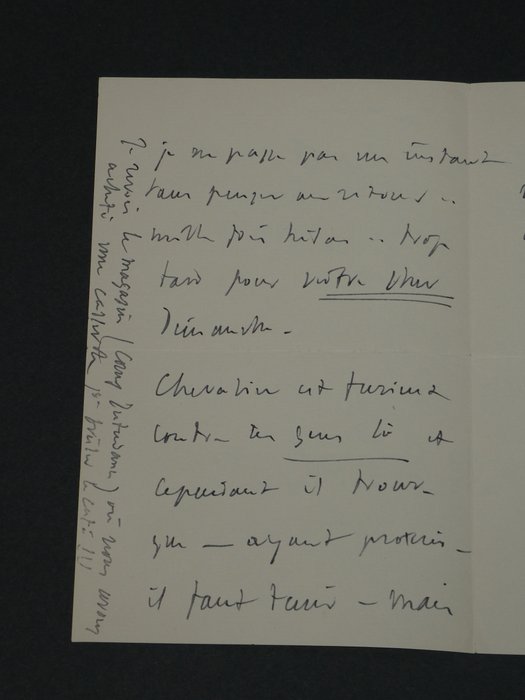 je ne passe pas un instant
sans penser au retour ..
mille fois hélas .. trop
tard pour votre cher
Dimanche -
Chevalier est furieux
contre ces gens là et
cependant il trouve
que — ayant promis —
il faut tenir — mais
Je revois le magasin (Cour ) où nous avons
acheté une casserole pr brûler le café !!!